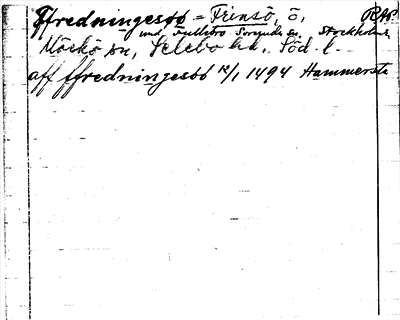 Ffredningesöö = Frinsö, ö, RAP
und. Fullbro Sorunda sn. Stockholms
Mörkö sn, Selebo hd, Söd. l.
aff ffredningesöö 12/1 1494 Hammersta